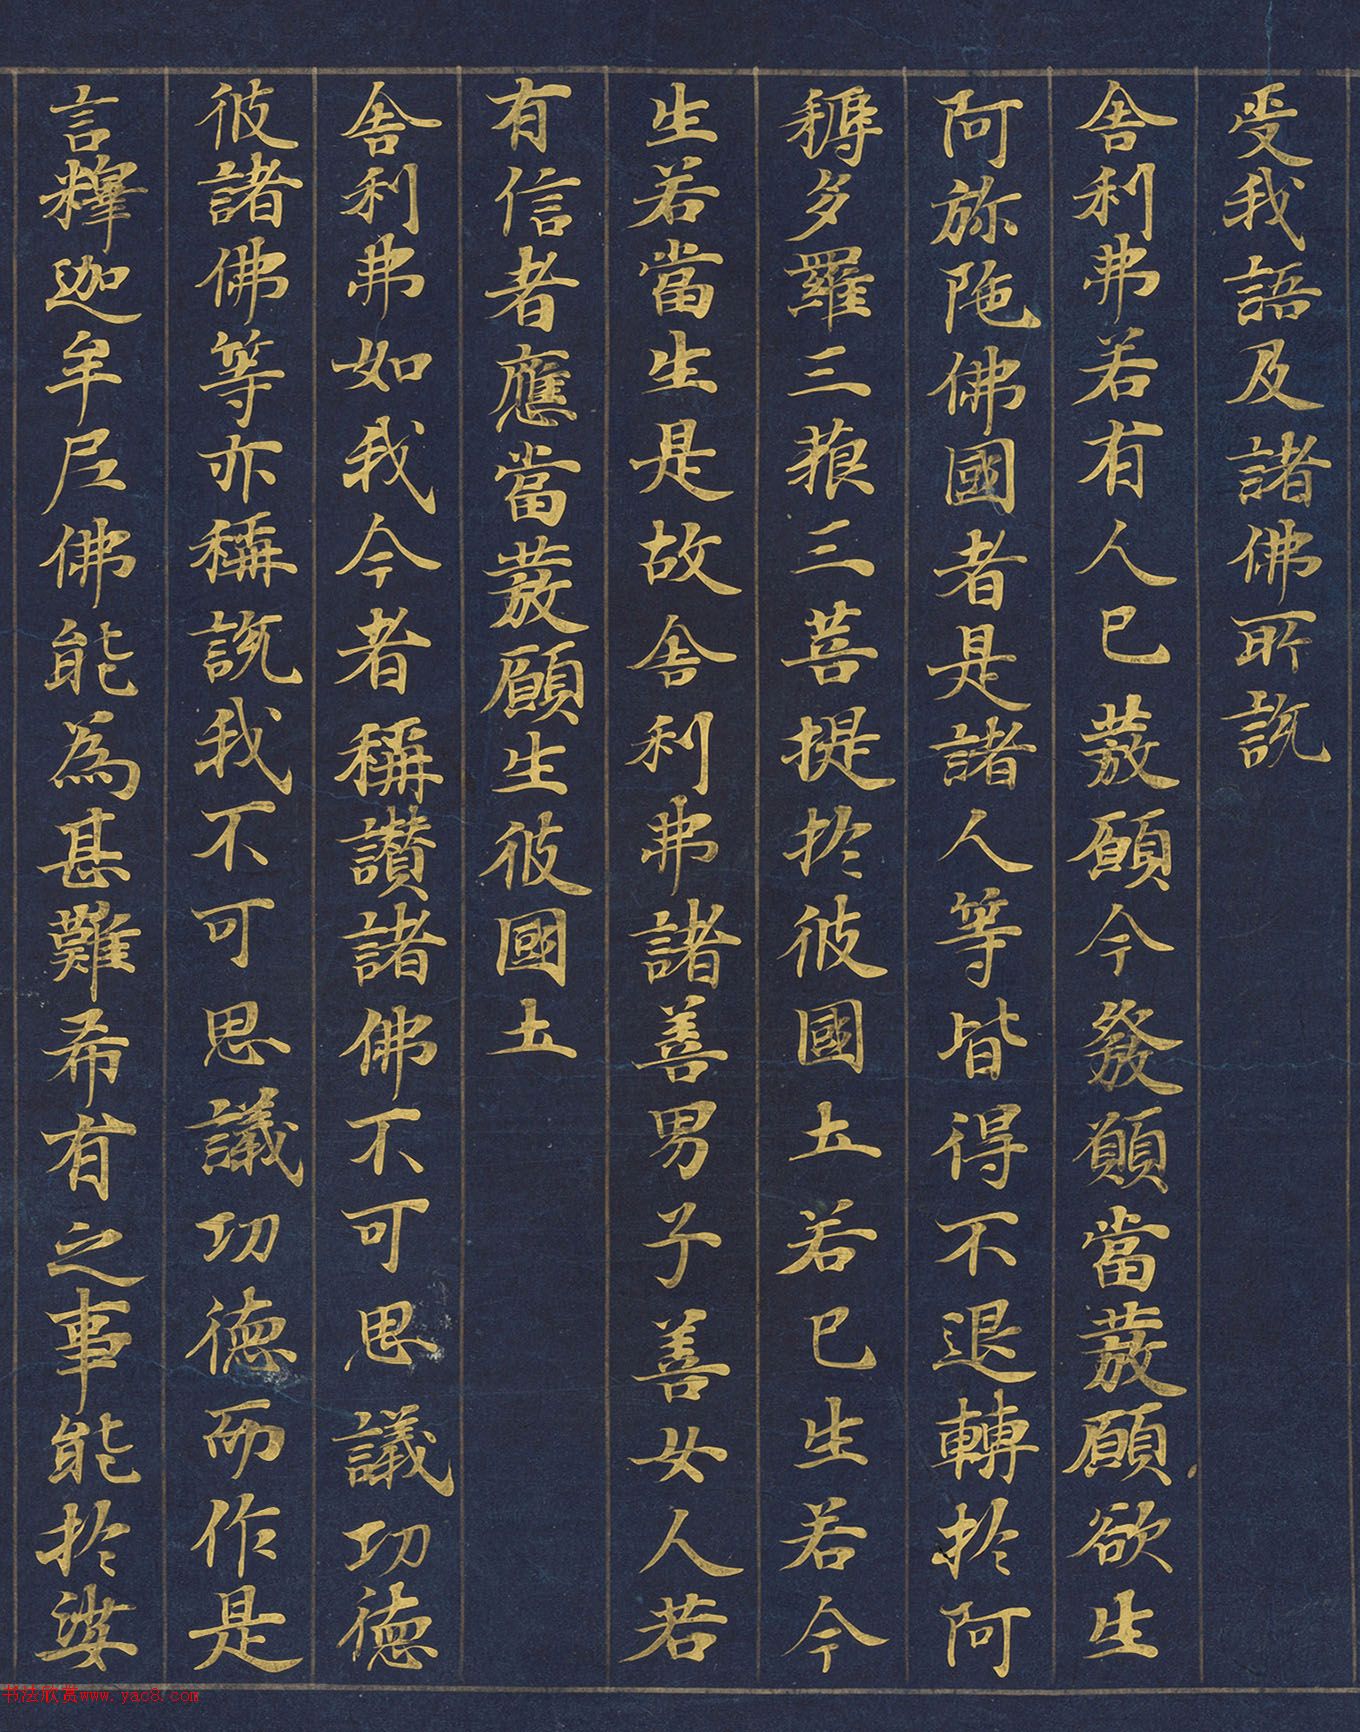 受我語及諸佛所說
舍利弗若有人已發願今發願當發願欲生
阿弥陁佛國者是諸人等皆得不退轉於阿
耨多羅三藐三菩提於彼國土若已生若今
生若當生是故舍利弗諸善男子善女人若
有信者應當發願生彼國土
舍利弗如我今者稱讚諸佛不可思議功德
彼諸佛等亦稱說我不可思議功德而作是
言釋迦牟尼佛能為甚難希有之事能於娑
书法欣赏www.yac8.com